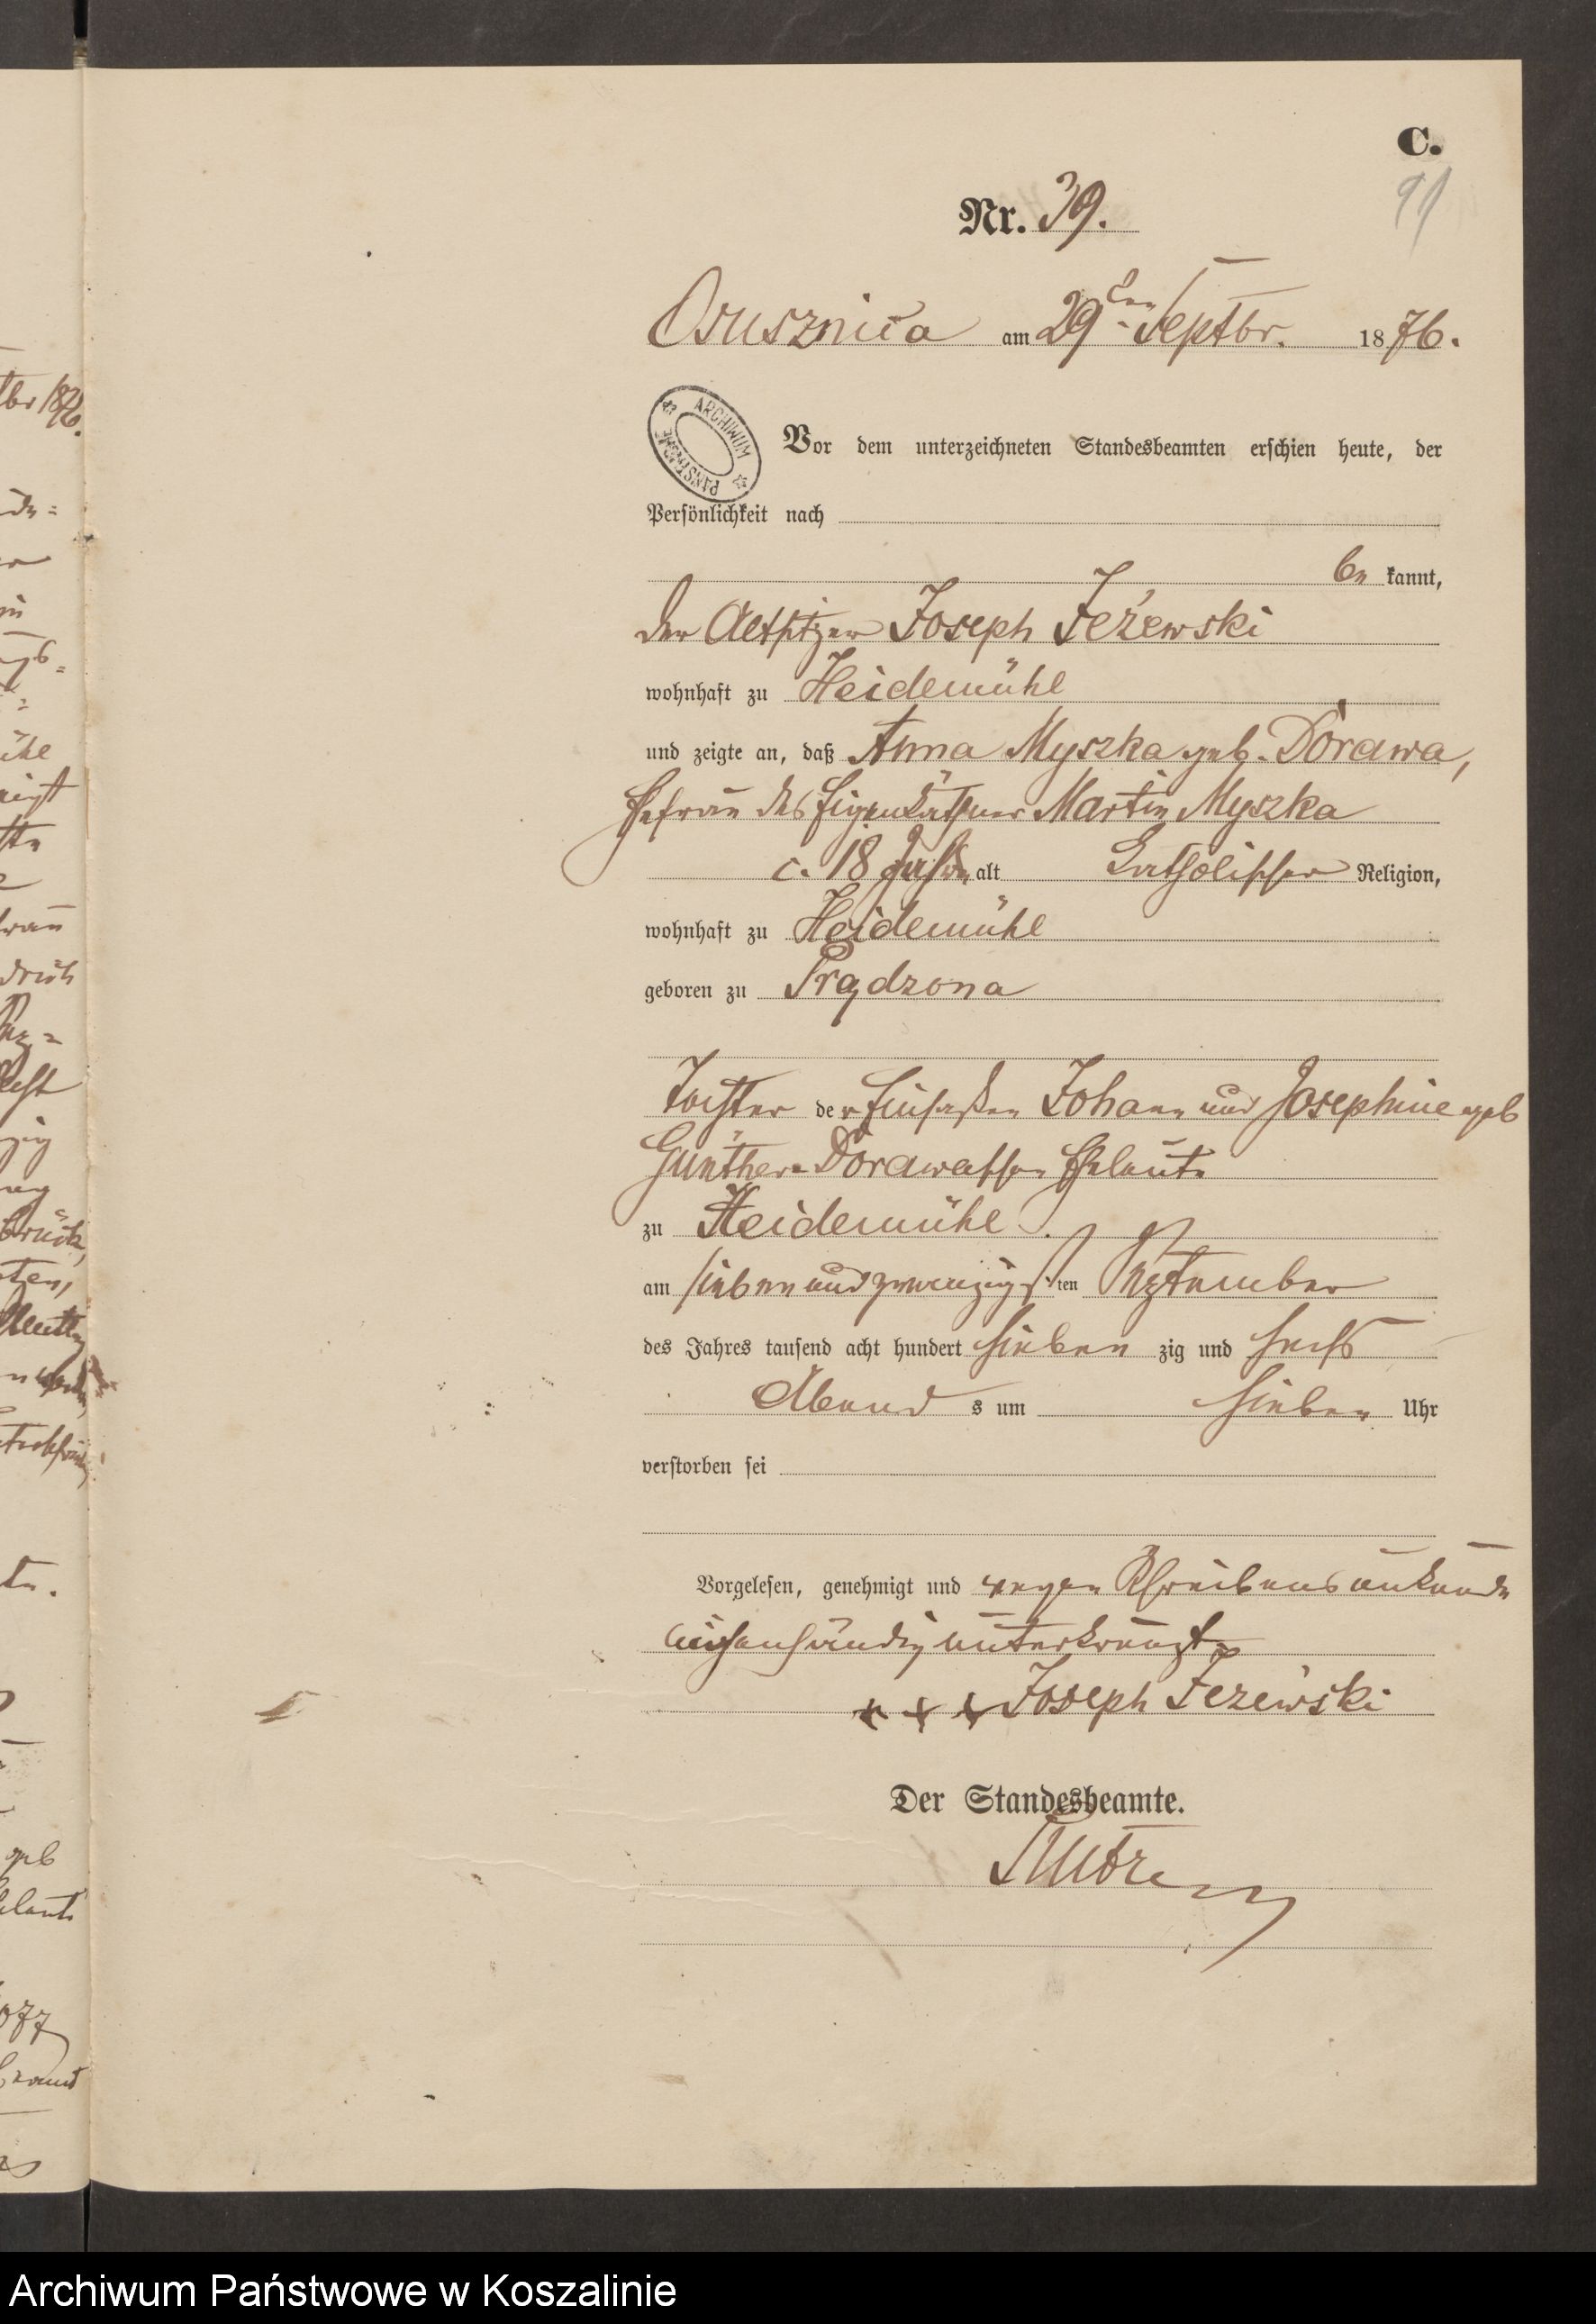 C.
91
Nr. 39.
Osusznica am 29ten Septbr. 1876.
ARCHIWUM PAŃSTWOWE
Vor dem unterzeichneten Standesbeamten erschien heute, der
Persönlichkeit nach
be kannt,
der Altsitzer Joseph Jeżewski
wohnhaft zu Heidemühl
und zeigte an, daß Anna Myszka geb. Dorawa,
Ehefrau des Eigenkäthner Martin Myszka
c. 18 Jahre alt katholischer Religion,
wohnhaft zu Heidemühl
geboren zu Prądzona
Tochter der Einsaßen Johann und Josephine geb
Günther-Dorawaschen Eheleute
zu Heidemühl.
am sieben und zwanzigsten September
des Jahres tausend acht hundert sieben zig und sechs
Abend s um sieben Uhr
verstorben sei
Vorgelesen, genehmigt und wegen Schreibensunkunde
unterkreuzt
+ + + Joseph Jeżewski
Der Standesbeamte.
Archiwum Państwowe w Koszalinie